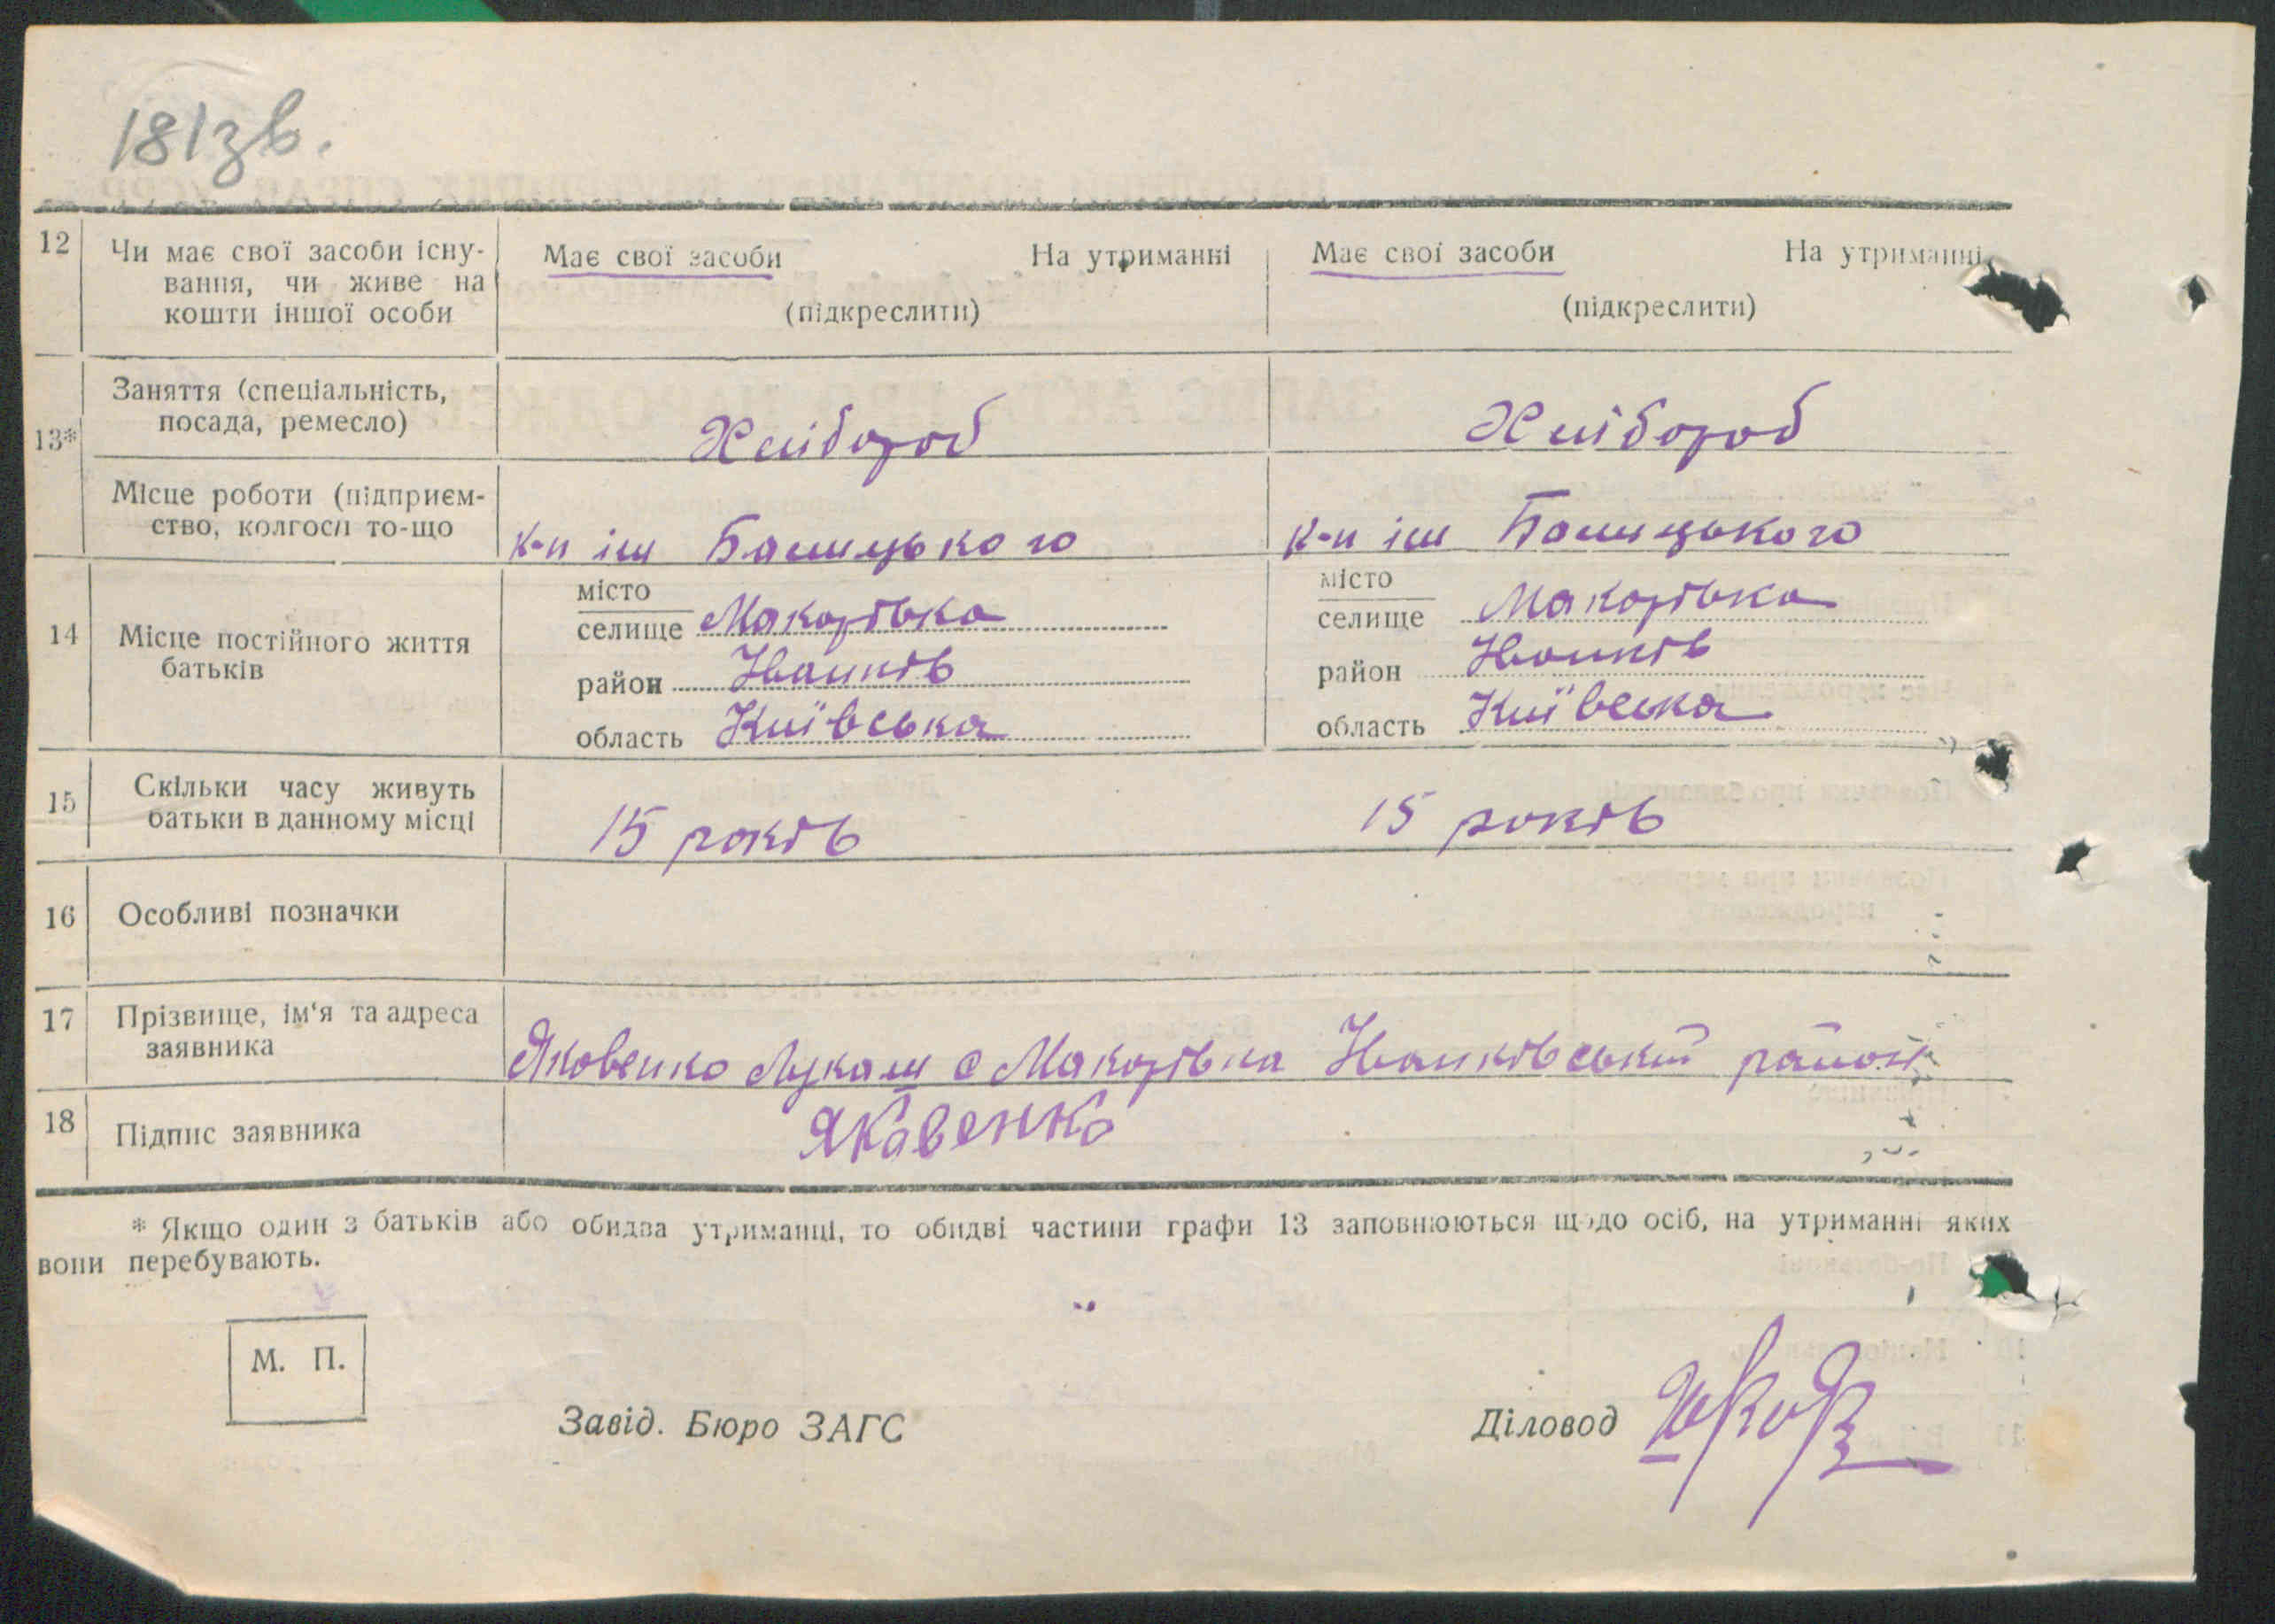 181зв.
12 Чи має свої засоби існу- Має свої засоби На утриманні Має свої засоби На утриманні
вання, чи живе на
кошти іншої особи (підкреслити) (підкреслити)
Заняття (спеціальність,
13* посада, ремесло) Хлібороб Хлібороб
Місце роботи (підприєм-
ство, колгосп то-що к-п ім к-п ім
14 Місце постійного життя
батьків
місто
селище Макорівка
район Іванків
область Київська
місто
селище Макорівка
район Іванків
область Київська
15 Скільки часу живуть
батьки в данному місці 15 років 15 років
16 Особливі позначки
17 Прізвище, ім‘я та адреса
заявника Яковенко Лукаш с Макорівка Іванківський район
18 Підпис заявника Якавенко
* Якщо один з батьків або обидва утриманці, то обидві частини графи 13 заповнюються щодо осіб, на утриманні яких
вони перебувають.
М. П.
Завід. Бюро ЗАГС Діловод